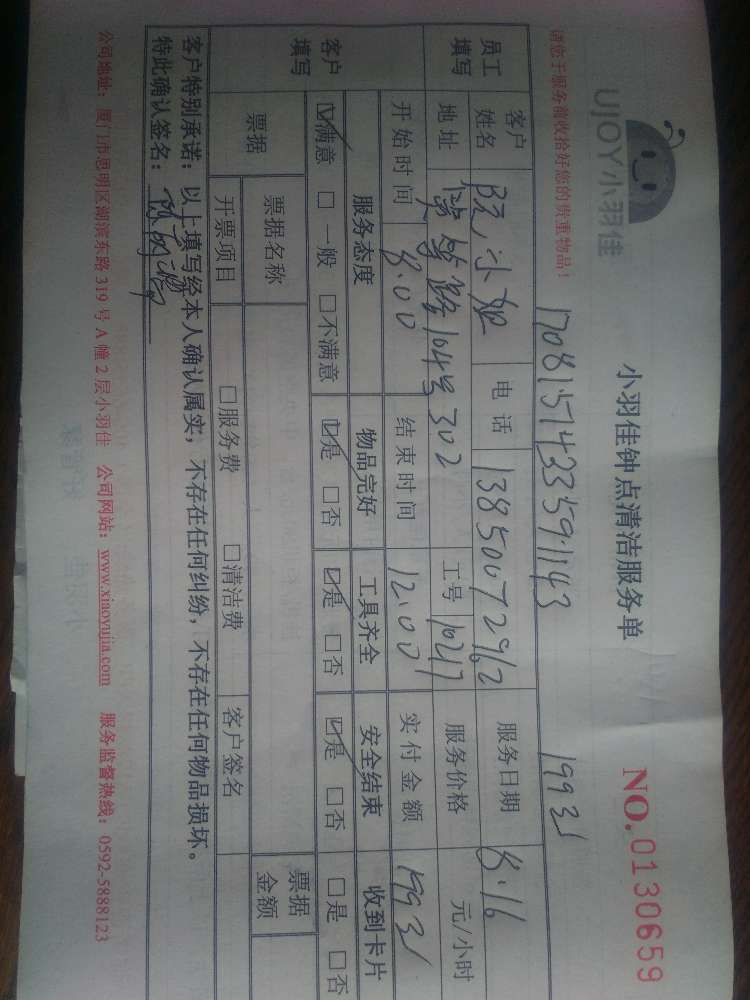 UJOY小羽佳
小羽佳钟点清洁服务单
NO.0130659
请您于服务前收拾好您的贵重物品!
17081514233591143
19931
员工填写
客户姓名 阮小姐 电话 13850072962 服务日期 8.16
地址 104号302 工号 10217 服务价格 元/小时
开始时间 8.00 结束时间 12.00 实付金额 19931
客户填写
服务态度 物品完好 工具齐全 安全结束 收到卡片
☑满意 □一般 □不满意 ☑是 □否 ☑是 □否 ☑是 □否 □是 □否
票据 票据名称 票据金额
开票项目 □服务费 □清洁费 客户签名
客户特别承诺:以上填写经本人确认属实,不存在任何纠纷,不存在任何物品损坏。
特此确认签名:
公司地址:厦门市思明区湖滨东路319号A幢2层小羽佳 公司网站:www.xiaoyujia.com 服务监督热线:0592-5888123